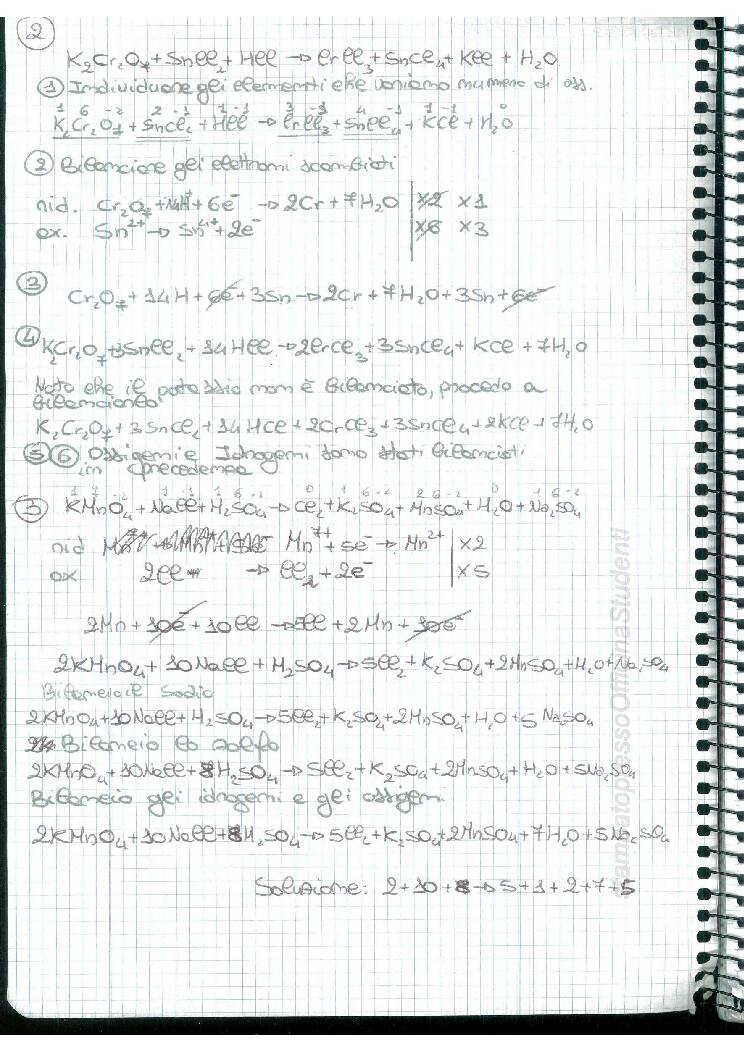 2
K2Cr2O7 + SnCl2 + HCl → CrCl3 + SnCl4 + KCl + H2O
1 Individuare gli elementi che variano numero di oss.
1 6 -2 2 -1 1 -1 3 -1 4 -1 1 -1 0
K2Cr2O7 + SnCl2 + HCl → CrCl3 + SnCl4 + KCl + H2O
2 Bilanciare gli elettroni scambiati
rid. Cr2O7 + 14H+ + 6e- → 2Cr + 7H2O | x2 x1
ox. Sn2+ → Sn4+ + 2e- | x6 x3
3
Cr2O7 + 14H + 6e- + 3Sn → 2Cr + 7H2O + 3Sn + 6e-
4 K2Cr2O7 + 3SnCl2 + 14HCl → 2CrCl3 + 3SnCl4 + KCl + 7H2O
Noto che il potassio non è bilanciato, procedo a
bilanciarlo
K2Cr2O7 + 3SnCl2 + 14HCl + 2CrCl3 + 3SnCl4 + 2KCl + 7H2O
5 6 Ossigeni e Idrogeni sono stati bilanciati
in precedenza
1 7 -2 1 -1 1 6 -2 0 1 6 -2 2 6 -2 0 1 6 -2
3 KMnO4 + NaCl + H2SO4 → Cl2 + K2SO4 + MnSO4 + H2O + Na2SO4
rid Mn7+ + 5e- → Mn2+ | x2
ox 2Cl- → Cl2 + 2e- | x5
2Mn + 10e- + 10Cl → 5Cl + 2Mn + 10e-
2KMnO4 + 10NaCl + H2SO4 → 5Cl2 + K2SO4 + 2MnSO4 + H2O + Na2SO4
Bilancio il Sodio
2KMnO4 + 10NaCl + H2SO4 → 5Cl2 + K2SO4 + 2MnSO4 + H2O + 5Na2SO4
Bilancio lo zolfo
2KMnO4 + 10NaCl + 8H2SO4 → 5Cl2 + K2SO4 + 2MnSO4 + H2O + 5Na2SO4
Bilancio gli idrogeni e gli ossigeni
2KMnO4 + 10NaCl + 8H2SO4 → 5Cl2 + K2SO4 + 2MnSO4 + 7H2O + 5Na2SO4
Soluzione: 2+10+8 → 5+1+2+7+5
StampatopressoOfficinaStudenti